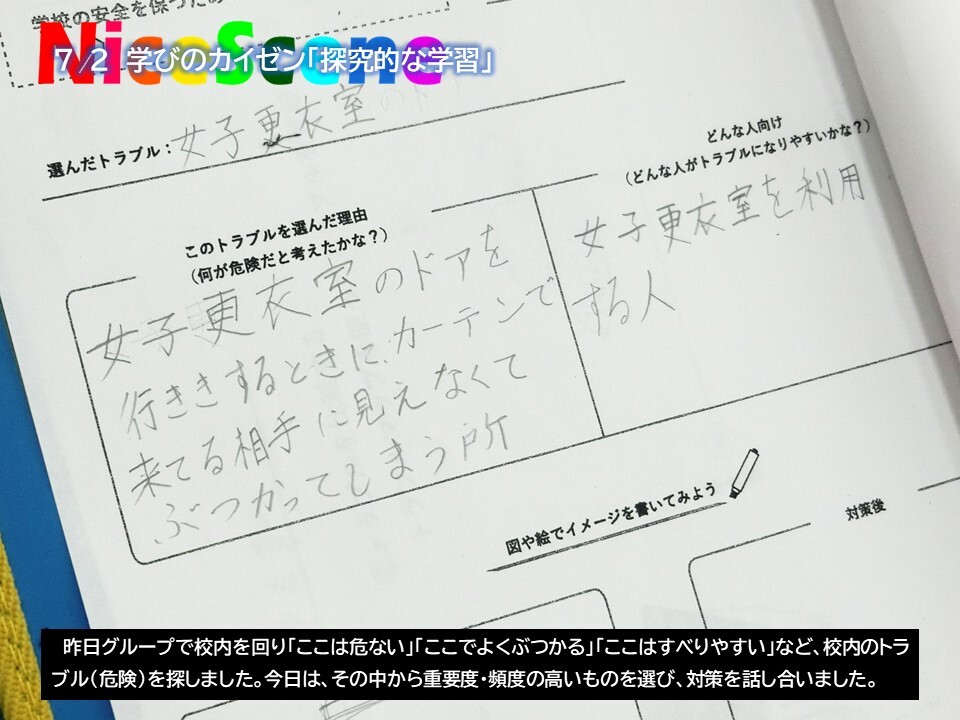 学校の安全を保つため
NiceScene
7/2 学びのカイゼン「探究的な学習」
選んだトラブル：女子更衣室の
このトラブルを選んだ理由
（何が危険だと考えたかな？）
女子更衣室のドアを
行ききするときに、カーテンで
来てる相手に見えなくて
ぶつかってしまう所
どんな人向け
（どんな人がトラブルになりやすいかな？）
女子更衣室を利用
する人
図や絵でイメージを書いてみよう
対策後
昨日グループで校内を回り「ここは危ない」「ここでよくぶつかる」「ここはすべりやすい」など、校内のトラ
ブル（危険）を探しました。今日は、その中から重要度・頻度の高いものを選び、対策を話し合いました。